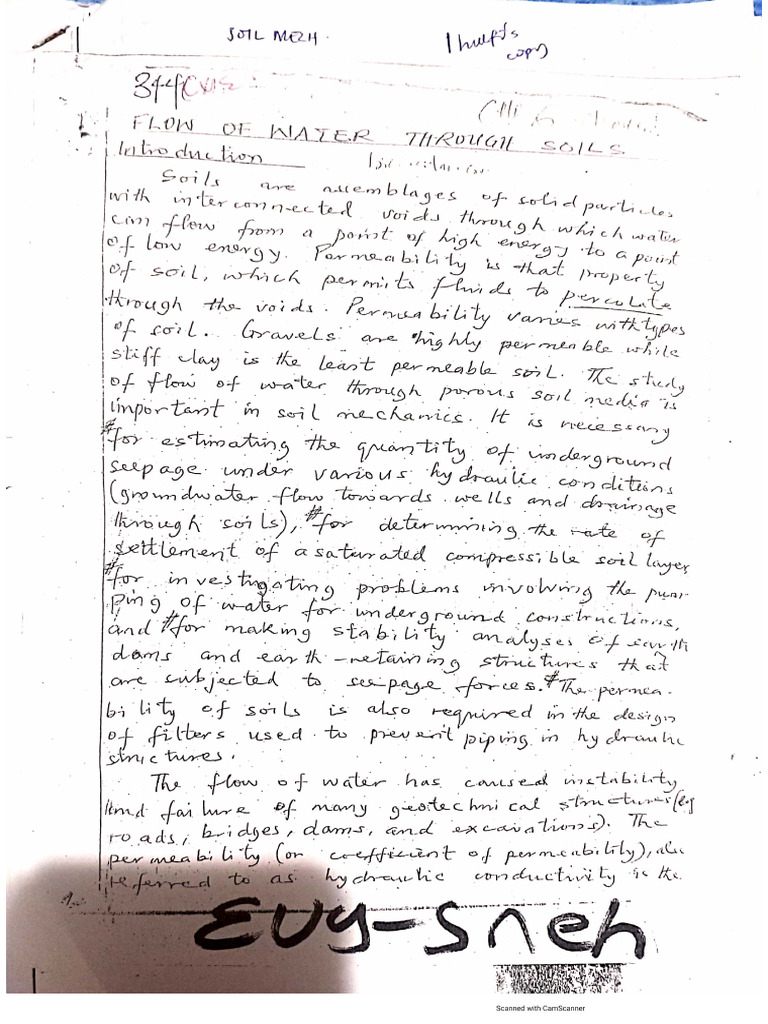 SOIL MECH.
copy
344
FLOW OF WATER THROUGH SOILS
Introduction
Soils are assemblages of solid particles
with interconnected voids through which water
can flow from a point of high energy to a point
of low energy. Permeability is that property
of soil, which permits fluids to percolate
through the voids. Permeability varies with types
of soil. Gravels are highly permeable while
stiff clay is the least permeable soil. The study
of flow of water through porous soil media is
important in soil mechanics. It is necessary
#for estimating the quantity of underground
seepage under various hydraulic conditions
(groundwater flow towards wells and drainage
through soils), #for determining the rate of
settlement of a saturated compressible soil layer,
#for investigating problems involving the pum-
ping of water for underground constructions,
and #for making stability analyses of earth
dams and earth-retaining structures that
are subjected to seepage forces. #The permea-
bility of soils is also required in the design
of filters used to prevent piping in hydraulic
structures.
The flow of water has caused instability
and failure of many geotechnical structures (eg
roads, bridges, dams, and excavations). The
permeability (or coefficient of permeability), also
referred to as hydraulic conductivity is the
EUY-SNEH
Scanned with CamScanner